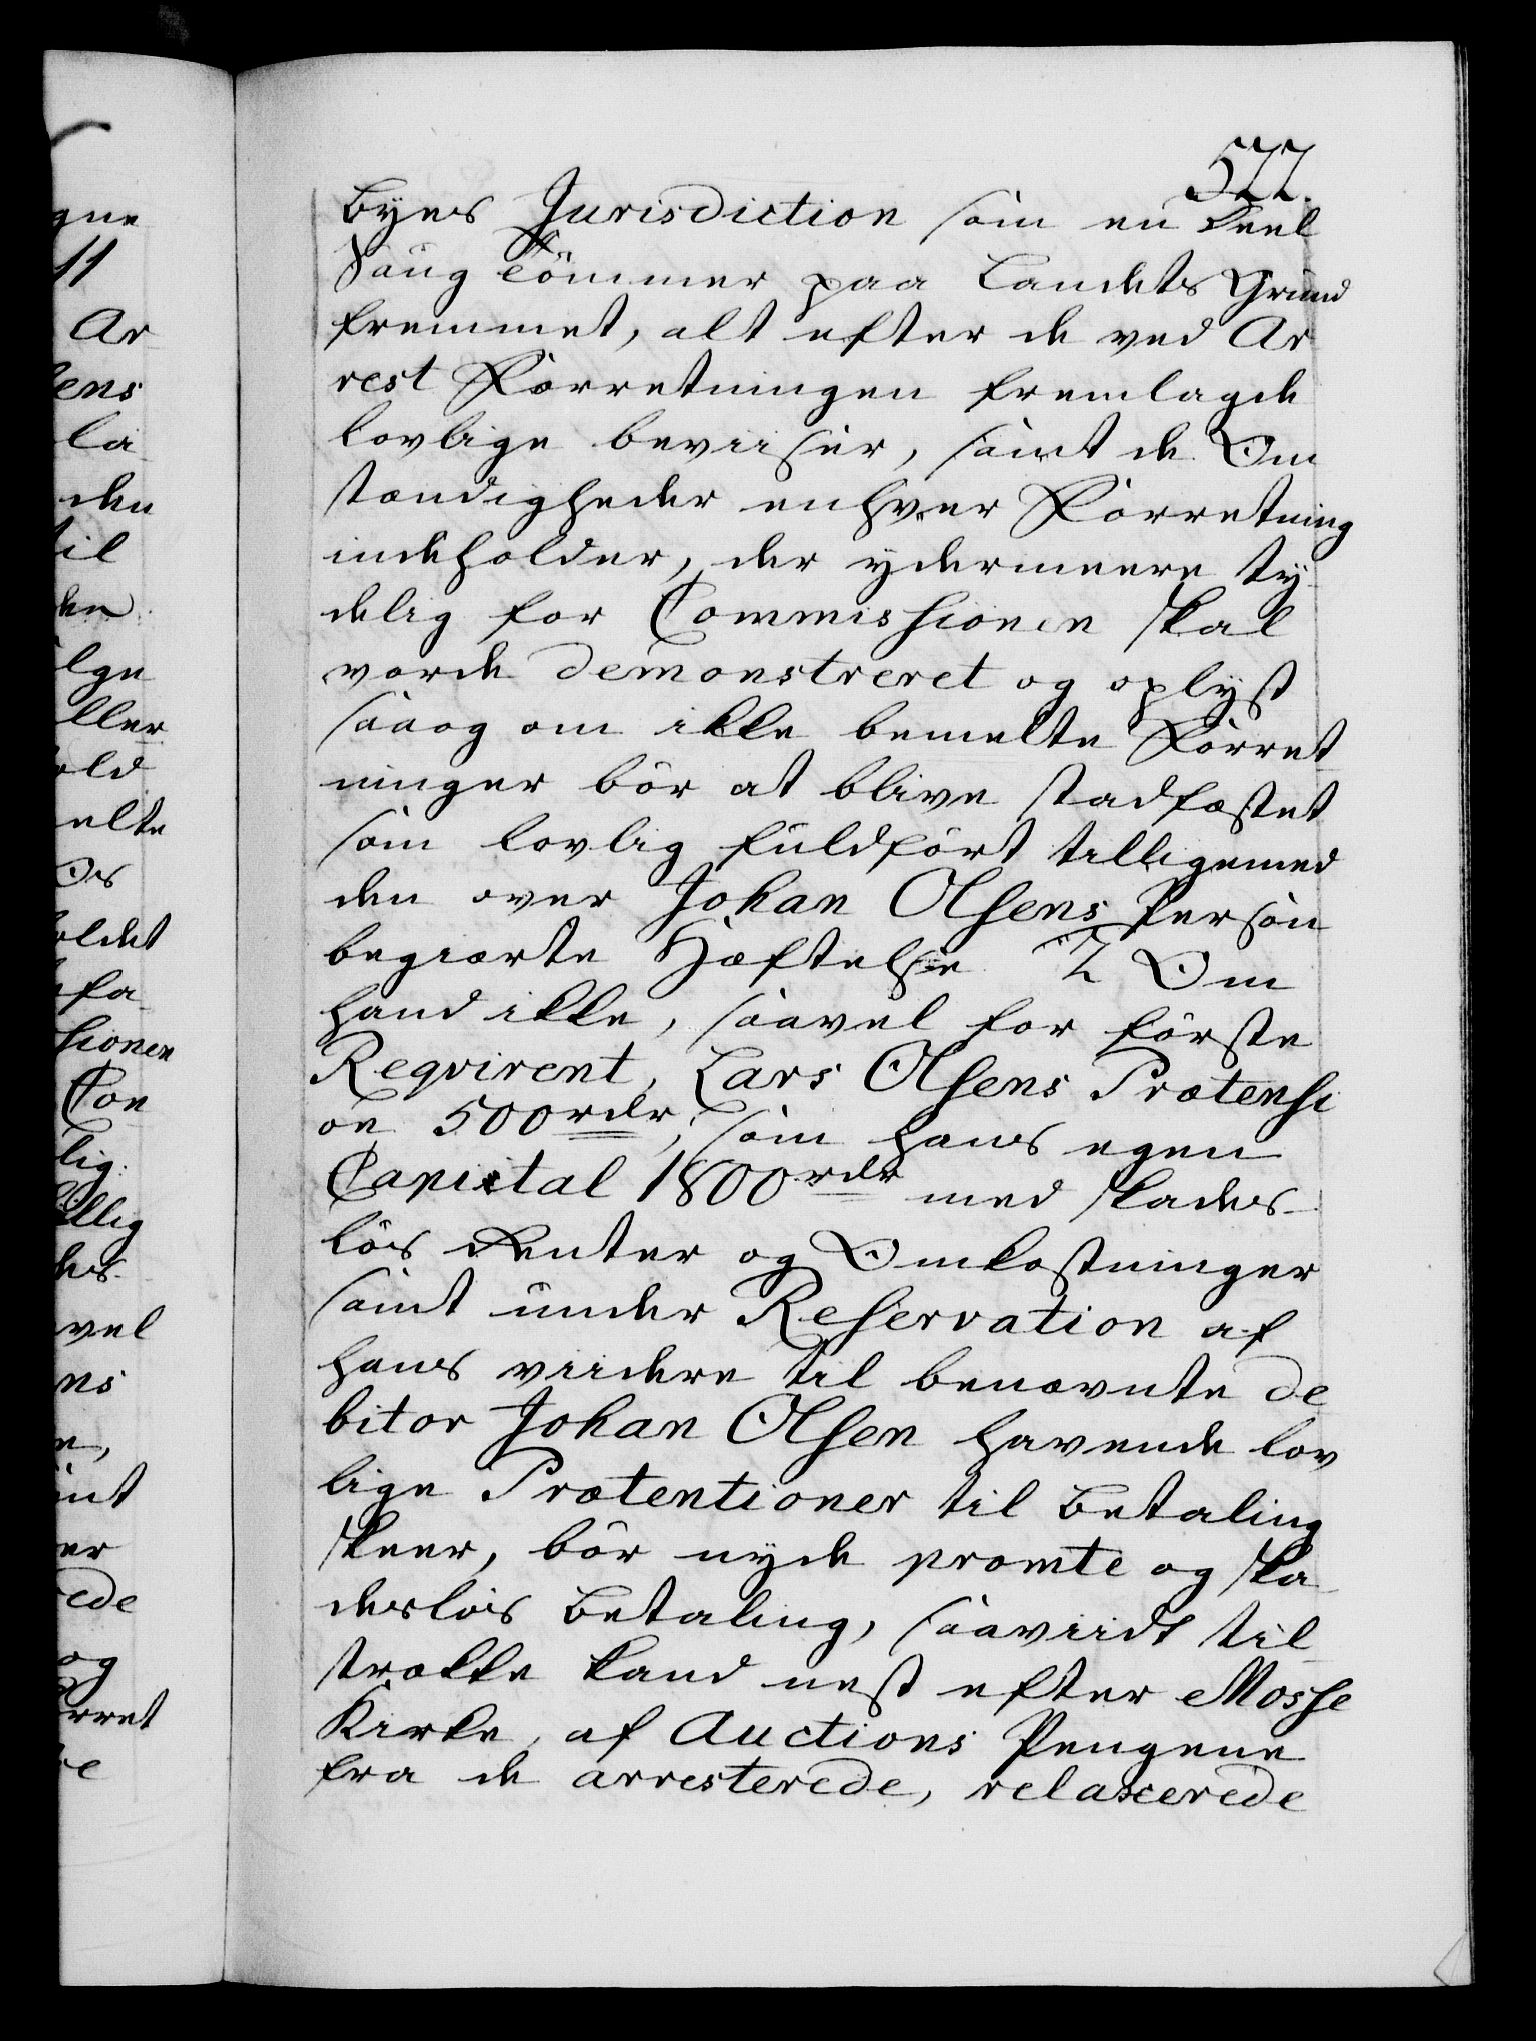 577.
Byes Jurisdiction som en Deel
Saug Tömmer paa Landets Grund
fremmet, alt efter de ved Ar
rest Forretningen fremlagde
lovlige beviiser, samt de Om
stændigheder enhver Forretning
indeholder, der ydermeere ty-
delig for Commissionen skal
vorde demonstreret og oplyst
saaog om ikke bemelte Forret
ninger bör at blive stadfæstet
som lovlig fuldfört tilligemed
den over Johan Olsens Person
begiærte Hæftelse 2 Om
hand ikke, saavel for förste
Reqvirent, Lars Olsens Prætensi
on 500 rdr, som hans egen
Capital 1800 rdr med skades-
lös Renter og Omkostninger
samt under Reservation af
hans viidere til benævnte de
bitor Johan Olsen havende lov
lige Prætentioner til Betaling
skeer, bör nyde promte og ska
deslös Betaling, saaviidt til-
strække kand nest efter Mosse
Kirke, af Auctions Pengene
fra de arresterede, relaxerede
gne
11
Ar
ens
la
den
til
den
ölge
eller
old
elte
Os
oldet
fa-
sionen
Con
lig
illig
des-
vel
ns
n,
int
er
ede
og
orret
e